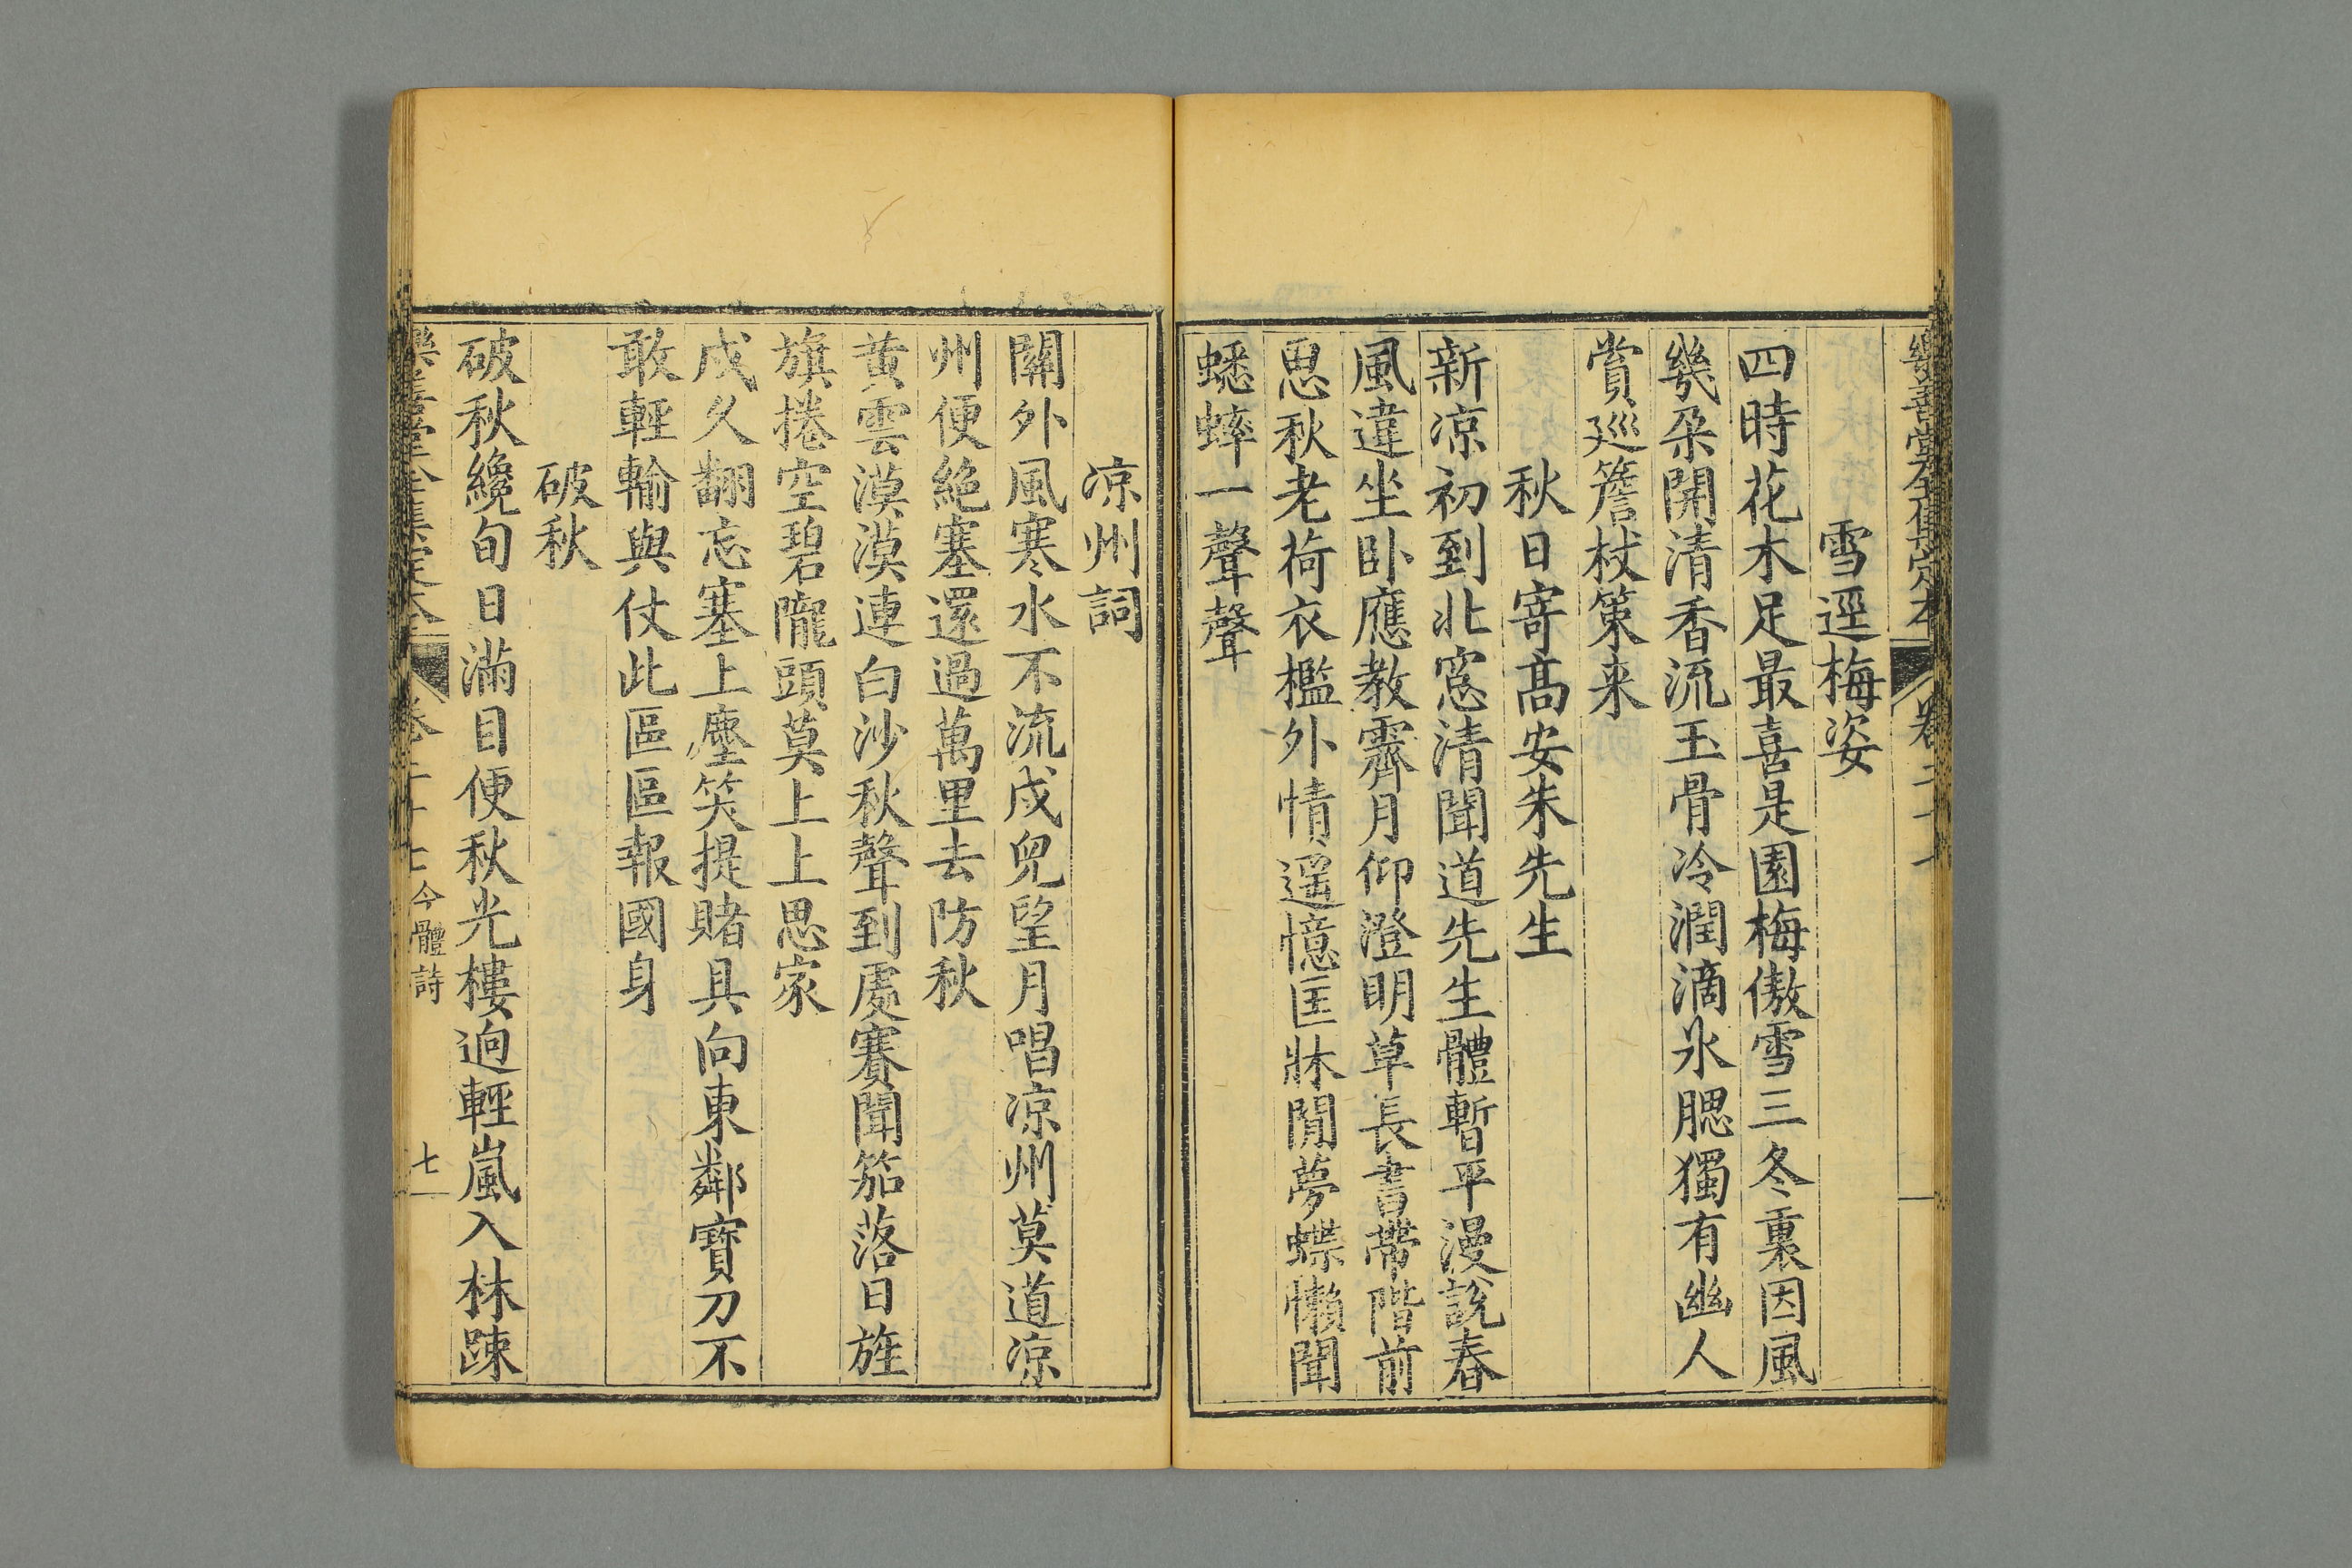 樂善堂全集定本 卷二十七
雪逕梅姿
四時花木足最喜是園梅傲雪三冬裏因風
幾朶開清香流玉骨冷潤滴氷腮獨有幽人
賞廵簷杖策来
秋日寄高安朱先生
新凉初到北窓清聞道先生體暫平漫說春
風違坐卧應教霽月仰澄明草長書帶階前
思秋老荷衣檻外情遥憶匡牀閒夢蝶懶聞
蟋蟀一聲聲
凉州詞
關外風寒水不流戍兒望月唱凉州莫道凉
州便絕塞還過萬里去防秋
黄雲漠漠連白沙秋聲到處賽聞笳落日旌
旗捲空碧隴頭莫上上思家
戍久翻忘塞上塵笑提賭具向東鄰寶刀不
敢輕輸與仗此區區報國身
破秋
破秋纔旬日滿目便秋光樓逈輕嵐入林踈
樂善堂全集定本 卷二十七今體詩 七